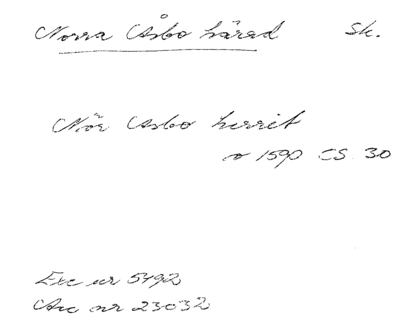 Norra Åsbo härad Sk.
Nör Asbo herrit
o 1590 CS 30
Exc nr 5492
Acc nr 23032